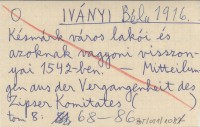 O IVÁNYI Béla 1916.
Késmárk város lakói és
azoknak vagyoni viszo-
nyai 1542-ben. — Mitteilun
gen aus der Vergangenheit des
Zipser Komitates (
ton 8. 68-86